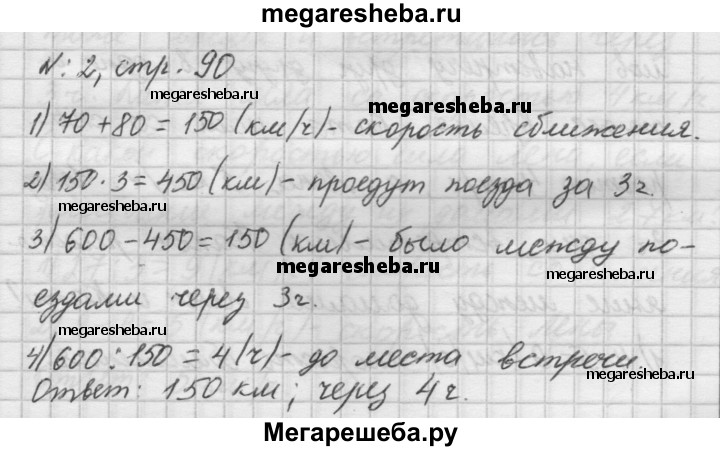 megaresheba.ru
№: 2, стр. 90
megaresheba.ru
megaresheba.ru
1) 70 + 80 = 150 (км/ч) - скорость сближения.
megaresheba.ru
2) 150 · 3 = 450 (км) - проедут поезда за 3 ч.
megaresheba.ru
3) 600 - 450 = 150 (км) - было между по-
megaresheba.ru
megaresheba.ru
ездами через 3 ч.
megaresheba.ru
4) 600 : 150 = 4 (ч) - до места встречи.
megaresheba.ru
Ответ: 150 км; через 4 ч.
Мегарешеба.ру